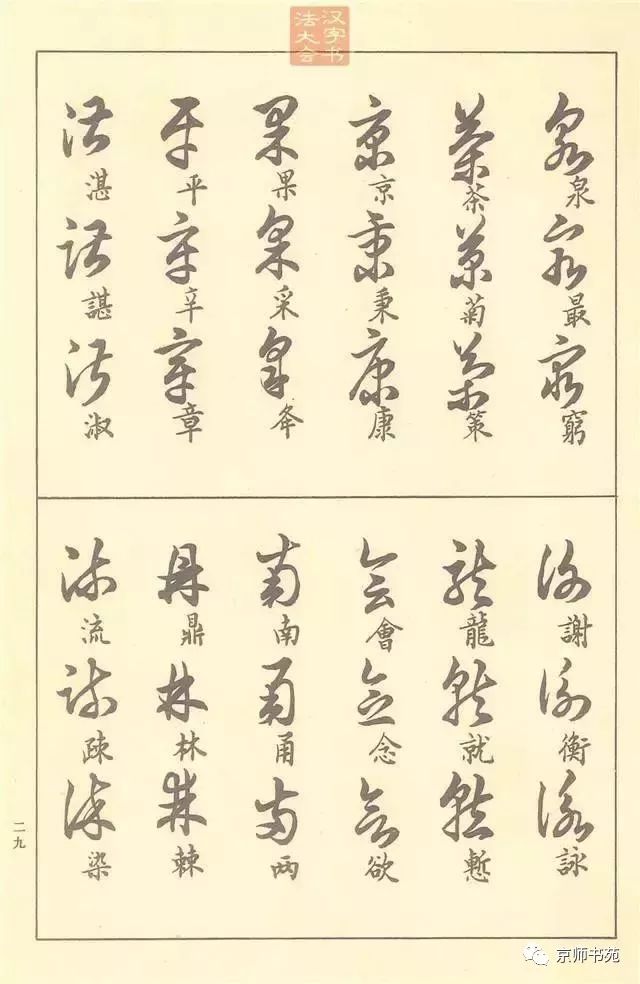 汉字书法大会
泉 最 窮
茶 菊 策
京 秉 康
果 采 夅
平 辛 章
湛 諶 淑
謝 衡 詠
龍 就 慙
會 念 欲
南 甬 两
鼎 林 棘
流 疎 染
二九
京师书苑